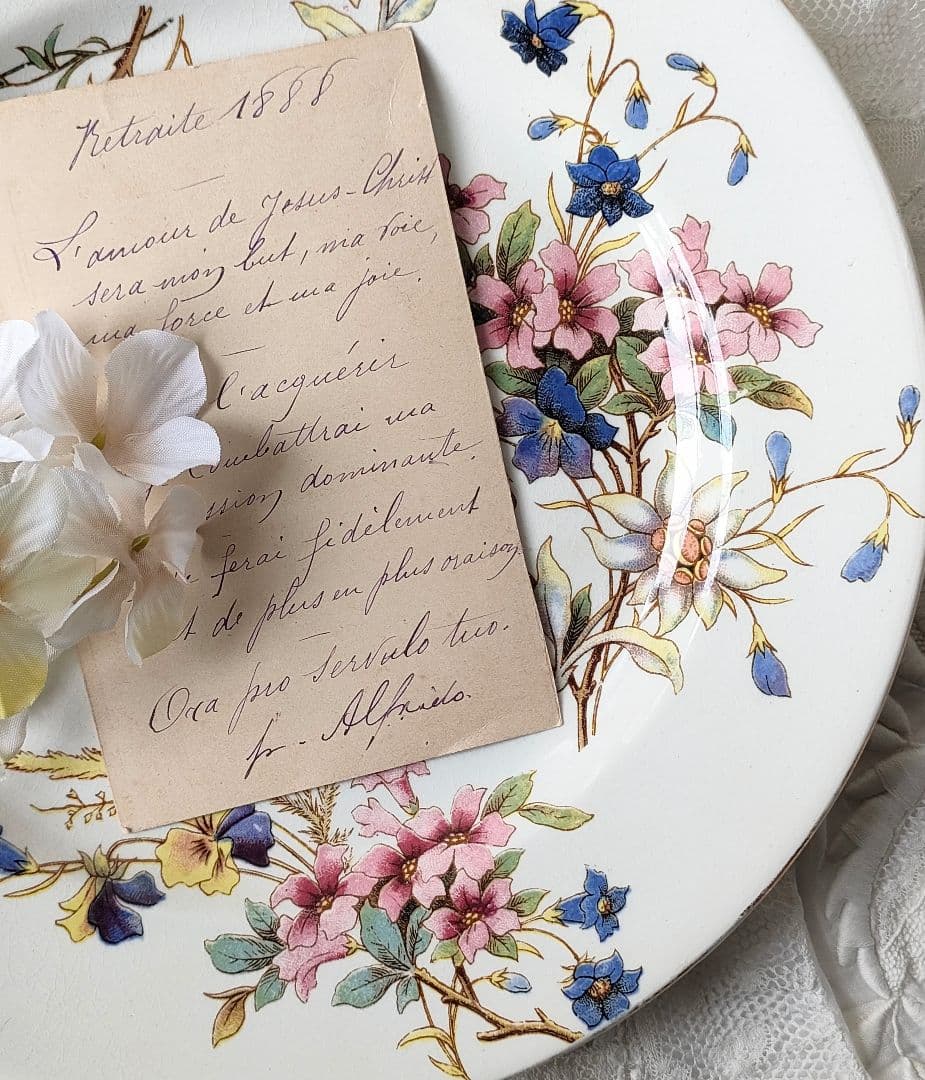 Retraite 1888
L'amour de Jesus-Christ
sera mon but, ma voie,
ma force et ma joie.
l'acquérir
combattrai ma
ssion dominante.
ferai fidèlement
t de plus en plus oraison.
Ora pro servulo tuo.
fr. Alfrido.